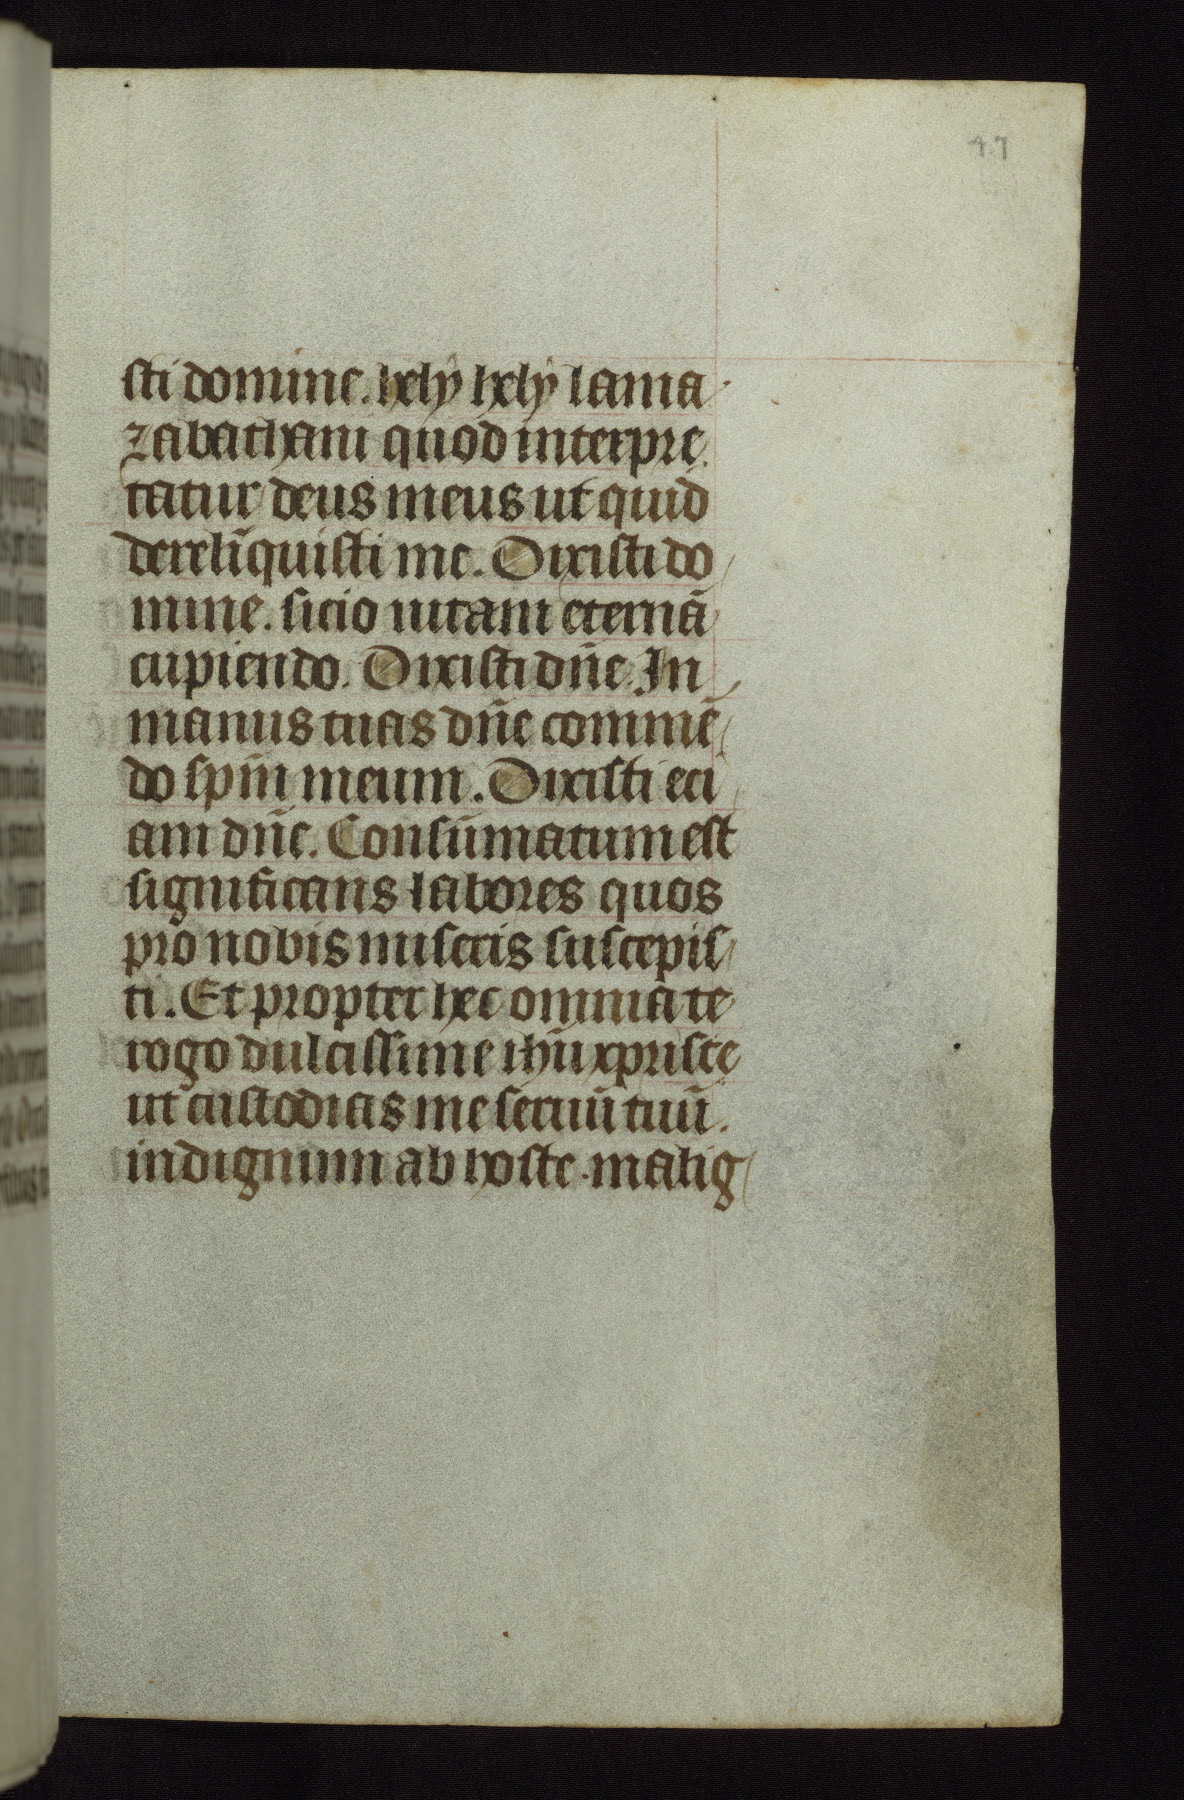 47
sti domine. hely hely lama
zabathani quod interpre
tatur deus meus ut quid
derelīquisti me. Dixisti do
mine. sicio uitam eternā
cupiendo. Dixisti dn̄e. In
manus tuas dn̄e commē
do sp̄m meum. Dixisti eci
am dn̄e. Consūmatum est
significans labores quos
pro nobis miseris suscepis
ti. Et propter hec omnia te
rogo dulcissime ihū xpriste
ut custodias me seruū tuū.
indignum ab hoste malig